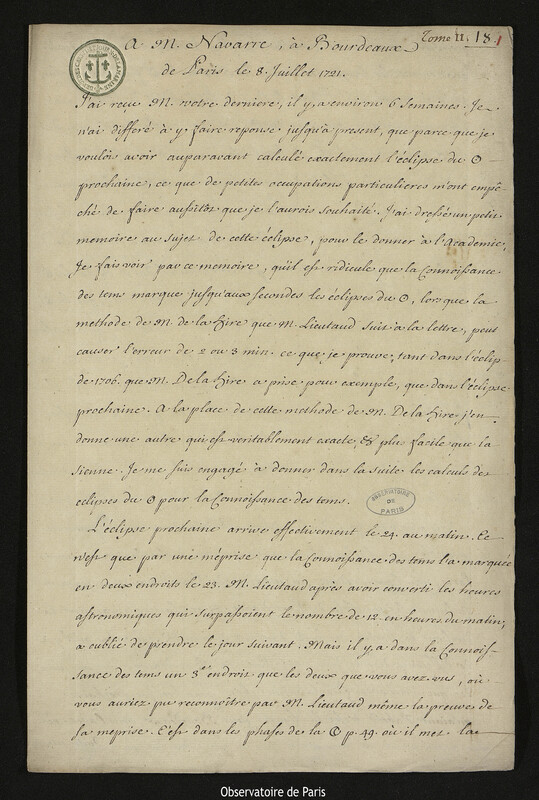 Tome II. 18.
A M. Navarre, à Bourdeaux
de Paris le 8. Juillet 1721.
J'ai reçu M. votre derniere, il y a environ 6 semaines. Je
n'ai differé à y faire reponse jusqu'à present, que parce que je
voulois avoir auparavant calculé exactement l'éclipse du ☉
prochaine, ce que de petites occupations particulieres m'ont empê-
ché de faire aussitôt que je l'aurois souhaité. J'ai dressé un petit
memoire au sujet de cette éclipse, pour le donner à l'Academie,
Je fais voir par ce memoire, qu'il est ridicule que la Connoissance
des tems marque jusqu'aux secondes les éclipses du ☉, lorsque la
methode de M. de la Hire que M. Lieutaud suit à la lettre, peut
causer l'erreur de 2 ou 3 min. ce que je prouve, tant dans l'éclip.
de 1706. que M. De la Hire a prise pour exemple, que dans l'éclipse
prochaine. A la place de cette methode de M. De la Hire j'en
donne une autre qui est veritablement exacte, & plus facile que la
sienne. Je me suis engagé à donner dans la suite les calculs des
eclipses du ☉ pour la Connoissance des tems.
OBSERVATOIRE DE PARIS
L'éclipse prochaine arrive effectivement le 24. au matin. Ce
n'est que par une méprise que la Connoissance des tems l'a marquée
en deux endroits le 23. M. Lieutaud après avoir converti les heures
astronomiques qui surpassoient le nombre de 12. en heures du matin,
a oublié de prendre le jour suivant. Mais il y a dans la Connois-
sance des tems un 3e endroit que les deux que vous avez vus, où
vous auriez pu reconnoître par M. Lieutaud même la preuve de
sa meprise. C'est dans les phases de la ☾ p. 49. où il met la
Observatoire de Paris